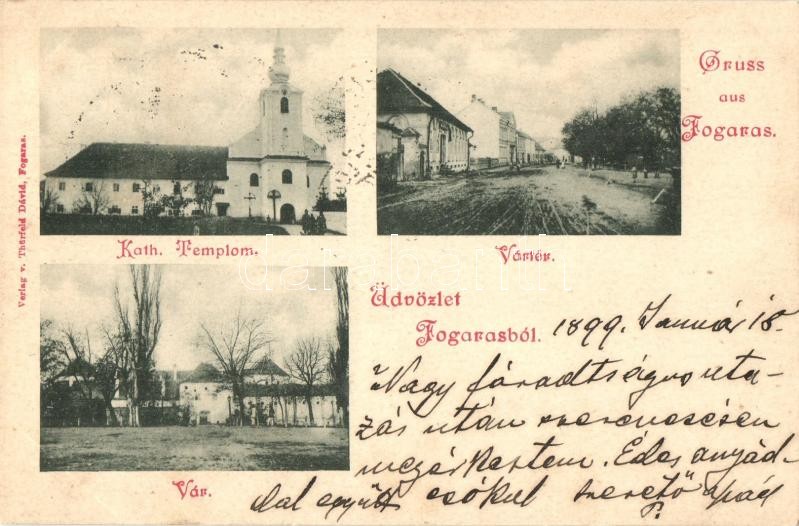 Gruss
aus
Fogaras.
Verlag v. Thürfeld Dávid, Fogaras.
Kath. Templom.
Vártér.
Üdvözlet
Fogarasból.
Vár.
1899. Január 18.
Nagy fáradtságos uta-
zás után szerencsésen
megérkeztem. Édes anyád-
dal együtt csókul szerető apád
darabanth.com